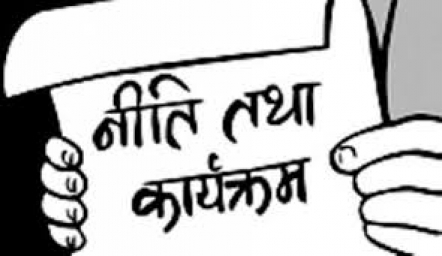 नीति तथा
कार्यक्रम